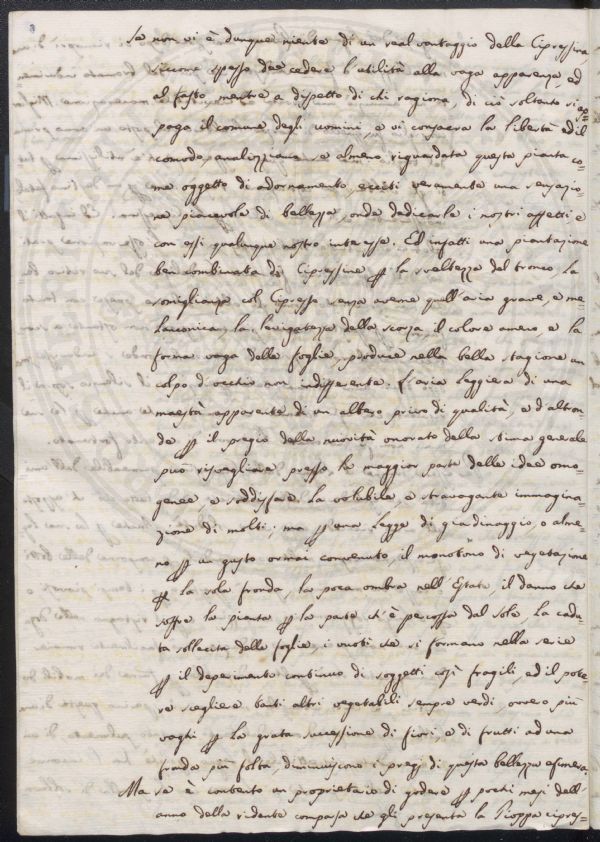 Se non vi è dunque niente di un real vantaggio della Cipressina,
siccome spesso dee cedere l'utilità alla vaga apparenza, ed
al fasto, mentre a dispetto di chi ragiona, di ciò soltanto si ap-
paga il comune degli uomini, e vi consacra la libertà ed il
comodo, analizziamo se almeno riguardata questa pianta co-
me oggetto di adornamento, ecciti veramente una sensazio-
ne piacevole di bellezza, onde dedicarle i nostri affetti e
con essi qualunque nostro interesse. Ed infatti una piantazione
ben combinata di Cipressine ꝑ la sveltezza del tronco, la
somiglianza col Cipresso senza averne quell'aria grave, e me-
lanconica, la levigatezza della scorza, il colore ameno, e la
forma vaga delle foglie, produce nella bella stagione un
colpo d'occhio non indifferente. L'aria leggiera di una
maestà apparente di un albero privo di qualità, e d'altron-
de ꝑ il pregio della novità onorato della stima generale
può risvegliare presso la maggior parte delle idee omo-
genee, e soddisfare la volubile e stravagante immagina-
zione di molti; ma ꝑ una legge di giardinaggio, o alme-
no ꝑ un gusto ormai convenuto, il monotono di vegetazione
ꝑ la sola fronda, la poca ombra nell'Estate, il danno che
soffre la pianta ꝑ la parte ch'è percossa dal sole, la cadu-
ta sollecita delle foglie, i vuoti che si formano nella serie
ꝑ il deperimento continuo di soggetti così fragili, ed il pote-
re scegliere tanti altri vegetabili sempre verdi, ovvero più
vaghi ꝑ la grata successione di fiori, e di frutti ad una
fronda più folta, diminuiscono i pregj di questa bellezza efimera.
Ma se è contento un proprietario di godere ꝑ pochi mesi dell'
anno della ridente comparsa che gli presenta la Pioppa cipres-